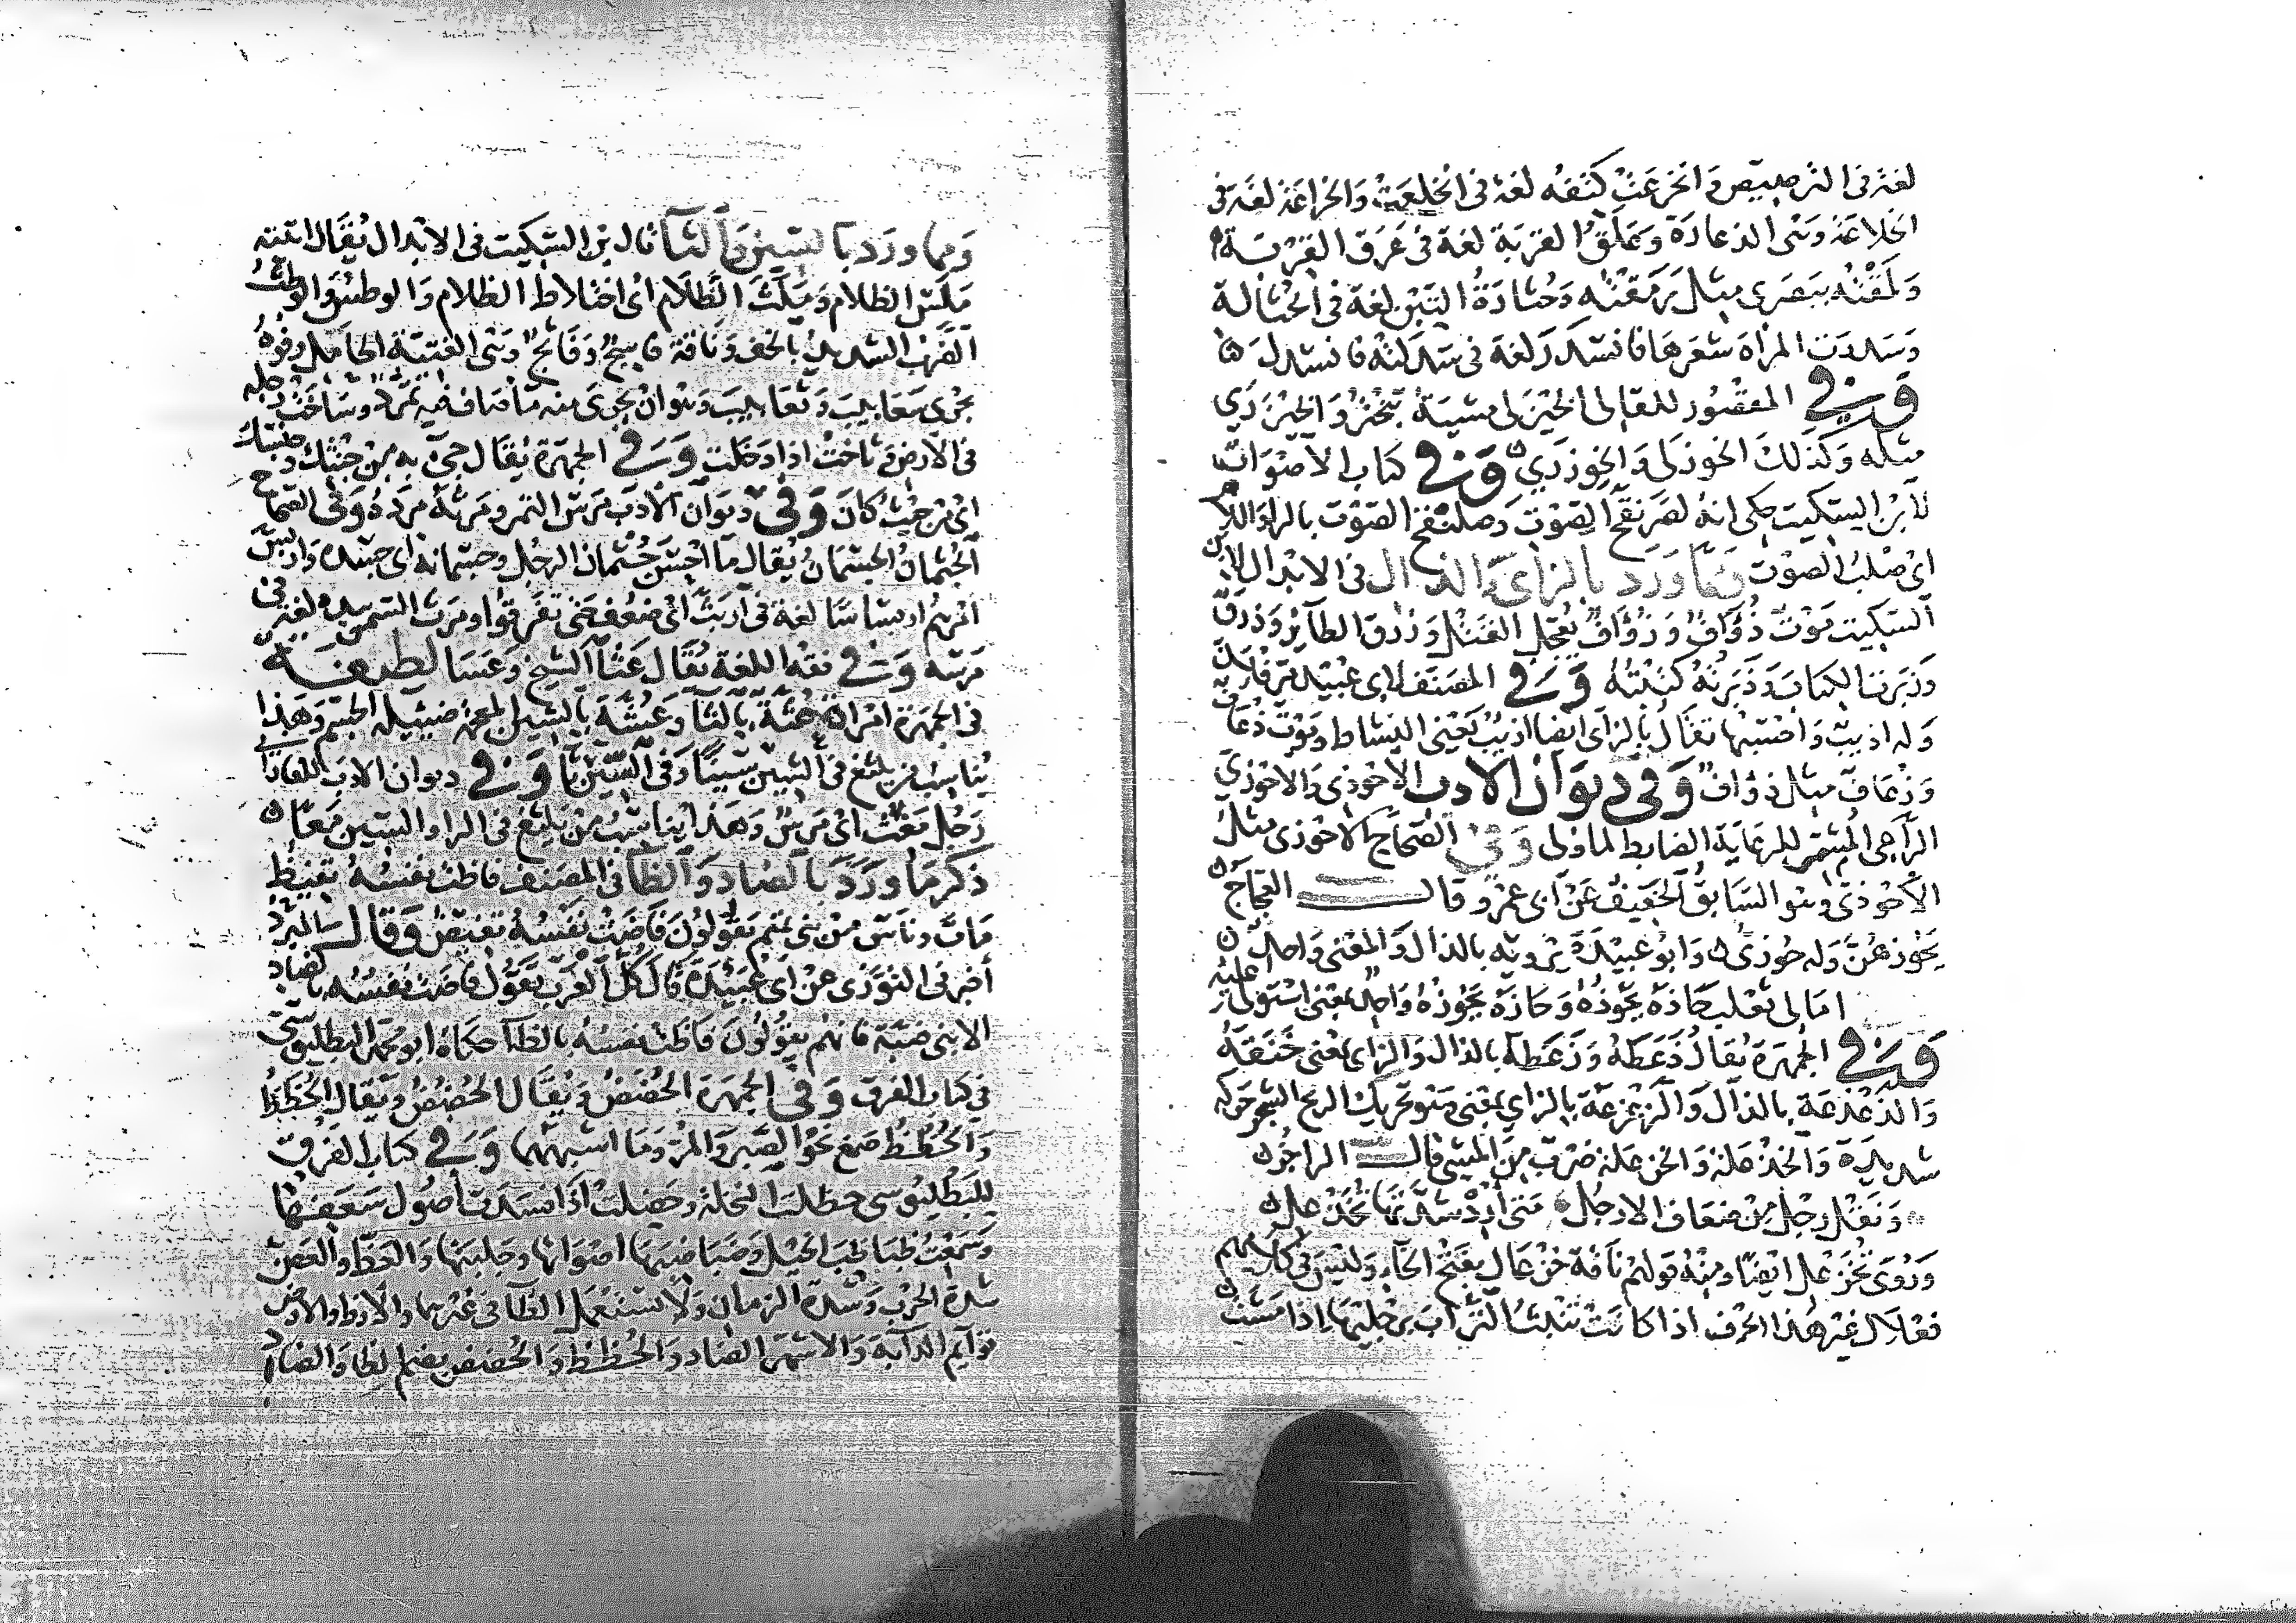 لغة في الترصيص وانخرعت كتفه لغة في انخلعت والخراعة لغة في
الخلاعة وهي الدعارة وعلق القربة لغة في عرق القربة
ولمقته ببصري مثل رمقته وحثارة التبن لغة في الحثالة
وسدرت المرأة شعرها فانسدر لغة في سدلته فانسدل
وفي المقصور للقالي الخيزلى مشية تبختر والخيزرى
مثله وكذلك الخوزلى والخوزرى وفي كتاب الأصوات
لابن السكيت حكى انه لصرنقح الصوت وصلنقح الصوت بالراء واللام
اي صلب الصوت ومما ورد بالزاي والذال في الابدال لابن
السكيت موت ذؤاف وزؤاف يعجل القتل وزرق الطائر وذرق
وزبرت الكتاب وذبرته كتبته وفي المصنف لابي عبيد مر فلان
وله اذيب واحسبها تقال بالزاي ايضا ازيب يعني النشاط وموت ذعاف
وزعاف مثل ذؤاف وفي ديوان الادب الاحوذي والاحوزي
الراعي المشمر للرعاية الضابط لما ولي وفي الصحاح الاحوذي مثل
الاحوزي وهو السابق الخفيف عن ابي عمرو قال العجاج
يحوزهن وله حوزي وابو عبيدة يرويه بالذال والمعنى واحد
امالي ثعلب حاذه يحوذه وحازه يحوزه واحد بمعنى استولى عليه
وفي الجمهرة يقال ذعطه وزعطه بالذال والزاي بمعنى خنقه
والذعذعة بالذال والزعزعة بالزاي بمعنى وهو تحريك الريح الشجر حركة
شديدة والخذعلة والخزعلة ضرب من المشي قال الراجز
ونقل رجل من ضعاف الارجل متى أرد شدتها تخذعل
وروى تخزعل ايضا ومنه قولهم ناقة خزعال بفتح الخاء وليس في كلامهم
فعلال غير هذا الحرف اذا كانت تنبث التراب برجليها اذا مشت
ومما ورد بالسين والثا قال بن السكيت في الابدال يقال اتيته
ملس الظلام وملث الظلام اي اختلاط الظلام والوطس والوطث
الضرب الشديد بالخف وناقة فاسج وفاثج وهي الفتية الحامل وفوه
يجري سعابيب وثعابيب وهو ان يجري منه ماء صاف فيه تمدد وساخت رجله
في الارض وثاخت اذا دخلت وفي الجمهرة يقال جيء به من حثك وحسك
اي من حيث كان وفي ديوان الادب مرس التمر ومرثه مرده وفي الصحاح
الجثمان الجسمان يقال ما احسن جثمان الرجل وجسمانه اي جسده واربس
امرهم اربساسا لغة في اربث اي ضعف حتى تفرقوا ومرث التمر بيده لغة في
مرسه وفي فقه اللغة يقال عثا الشيخ وعسا لطيفة
في الجمهرة امراة عثة بالثا وعشة بالشين المعجمة ضئيلة الجسم وهذا
يناسب من يلثغ في الشين سينا وفي السين ثا وفي ديوان الادب للفارابي
رجل مغث اي مرس وهذا يناسب من يلثغ في الراء والسين معا
ذكر ما ورد بالضاد والظا في المصنف فاظت نفسه تفيظ
مات وناس من بني تميم يقولون فاضت نفسه تفيض وقال المبرد
أخبرني التوزي عن ابي عبيدة قال كل العرب تقول فاضت نفسه بالضاد
الا بني ضبة فانهم يقولون فاظت نفسه بالظا حكاه ابو محمد البطليوسي
في كتاب الفرق وفي الجمهرة الحضض ويقال الحضض ويقال الحظظ
والحظظ صمغ نحو الصبر والمر وما اشبههما وفي كتاب الفرق
للبطليوسي حظلت النخلة وحضلت اذا فسدت أصول سعفها
وسمعت ظباظب الخيل وضباضبها اصواتها وجلبتها والعظ والعض
شدة الحرب وشدة الزمان ولا تستعمل الظا في غيرهما والارظ والارض
قوايم الدابة والاشهر الضاد والحظظ والحضض بضم الظا والضاد